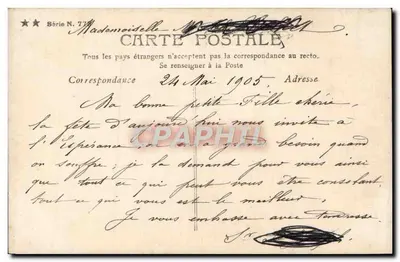 ★★ Série N. 77
Mademoiselle
CARTE POSTALE
Tous les pays étrangers n'acceptent pas la correspondance au recto.
Se renseigner à la Poste
Correspondance Adresse
24 Mai 1905
Ma bonne petite Fille chérie,
la fête d'aujourd'hui nous invite à
l'espérance on a grand besoin quand
on souffre; je la demande pour vous ainsi
que tout ce qui peut vous être consolant,
tout ce qui vous est le meilleur.
Je vous embrasse avec tendresse.
Sr
CPARAMA